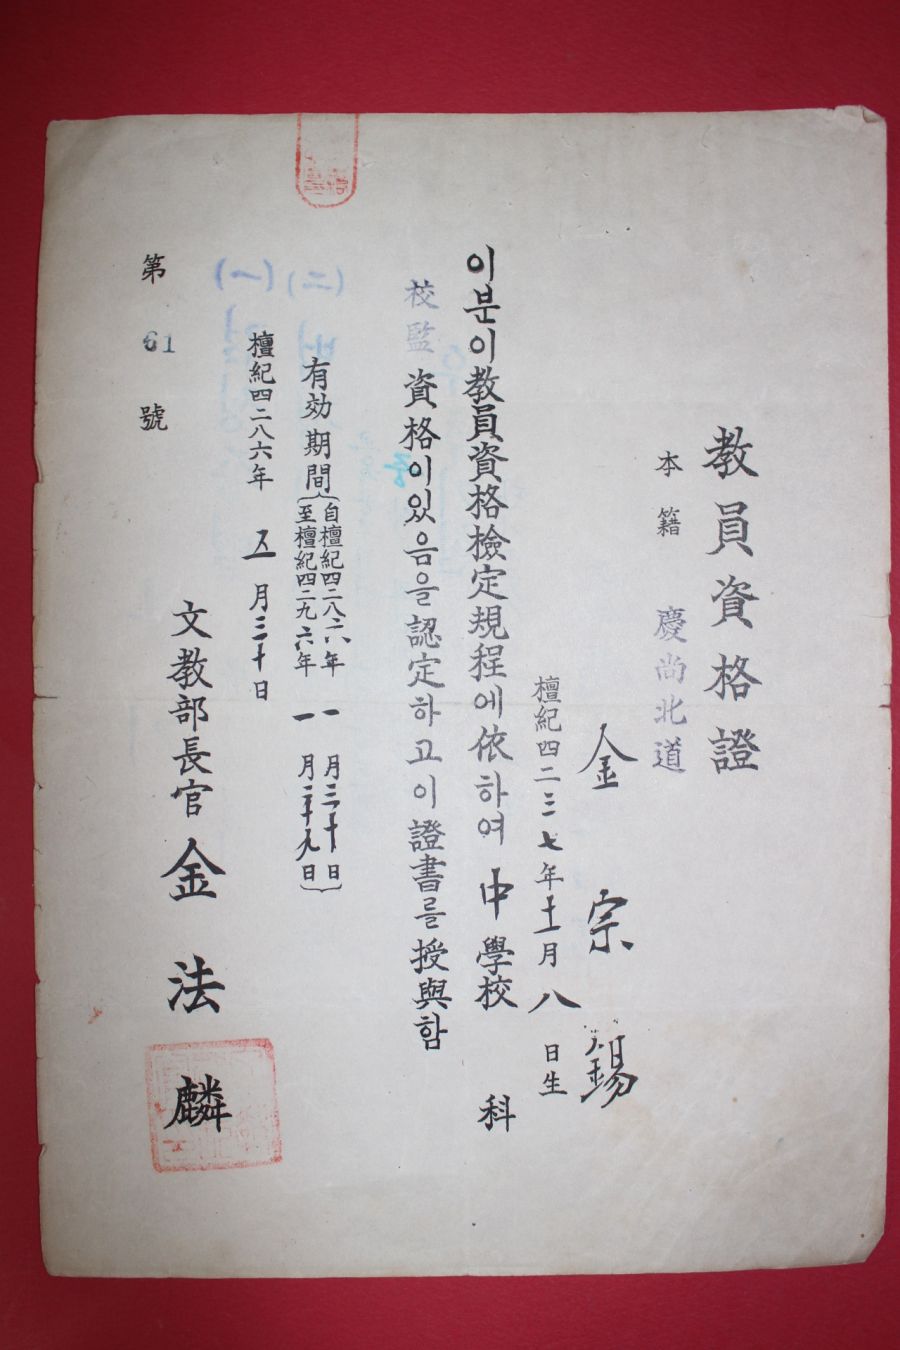 教員資格證
本籍 慶尚北道
金宗錫
檀紀四二三七年十一月八日生
이분이教員資格檢定規程에依하여 中學校 科
校監資格이있음을認定하고이證書를授與함
有効期間
自檀紀四二八六年一月三十日
至檀紀四二九六年一月二十九日
檀紀四二八六年五月三十日
文教部長官 金法麟
第61號
(二)
(一)